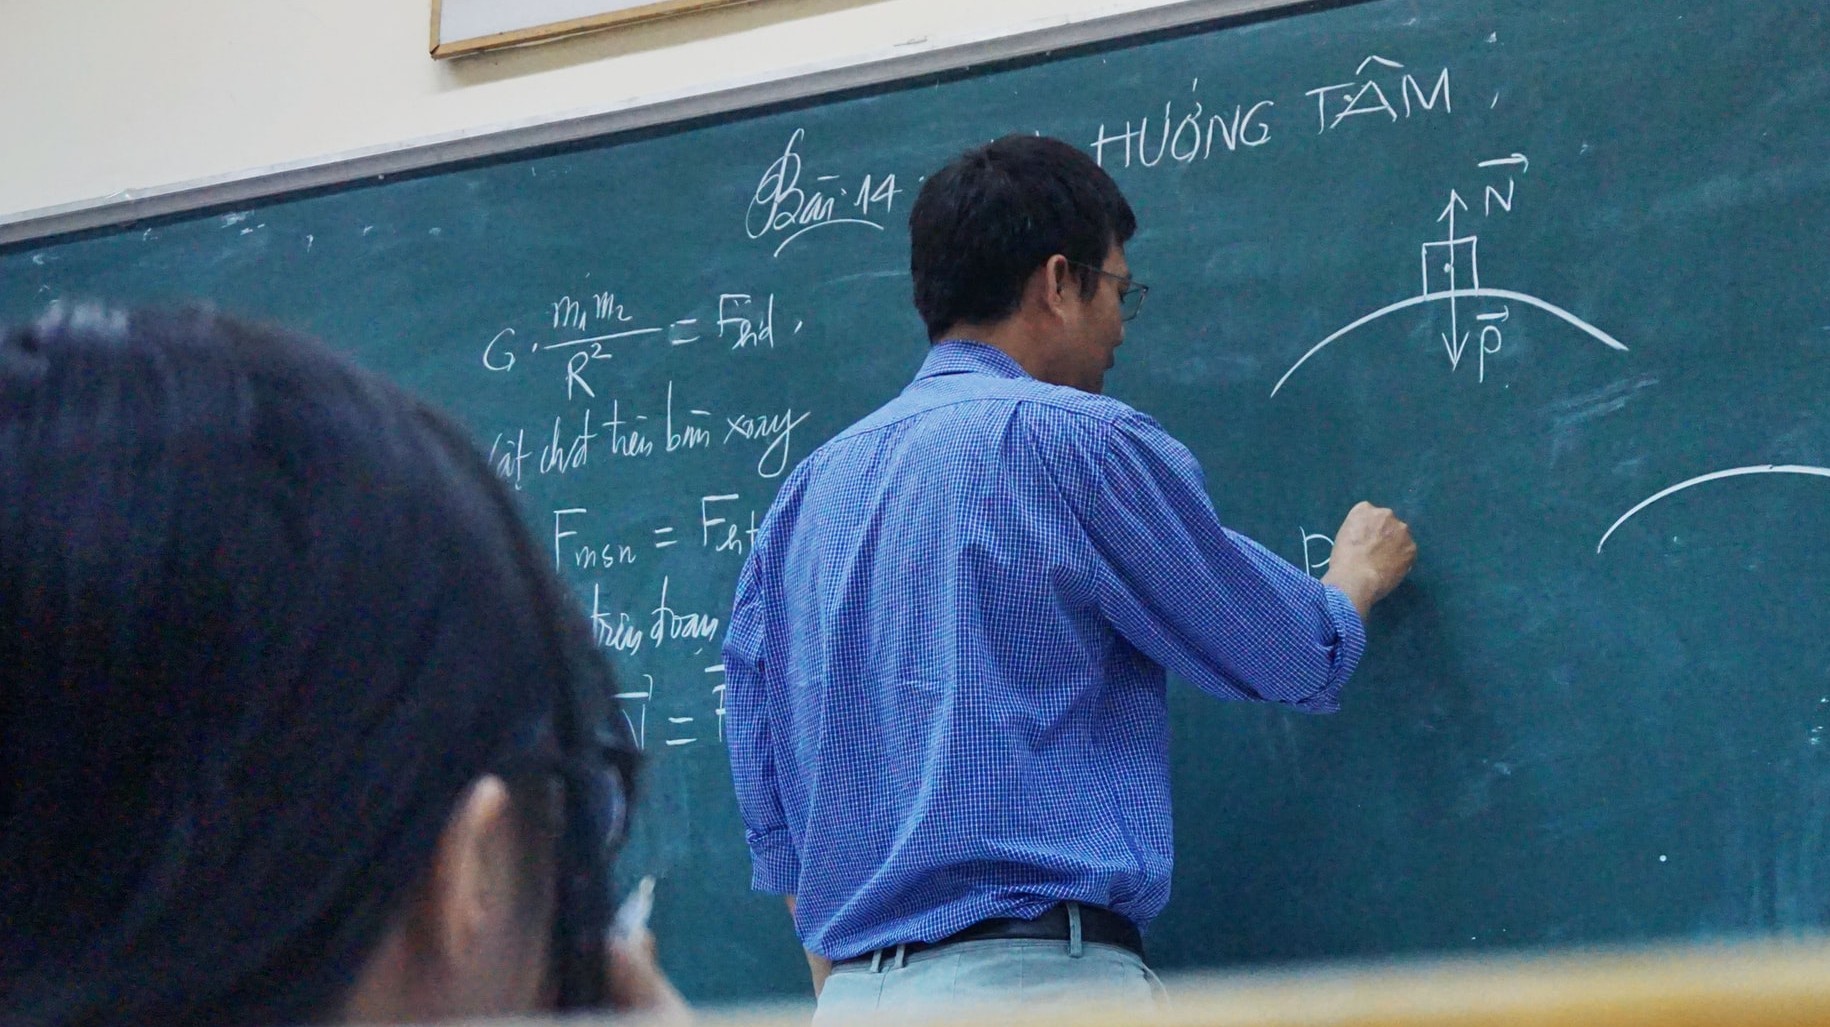 Bài 14: HƯỚNG TÂM
G. m₁m₂ / R² = Fhd,
vật đặt trên bàn xoay
Fmsn = Fht
trên đoạn
N⃗ =
N⃗
P⃗
P